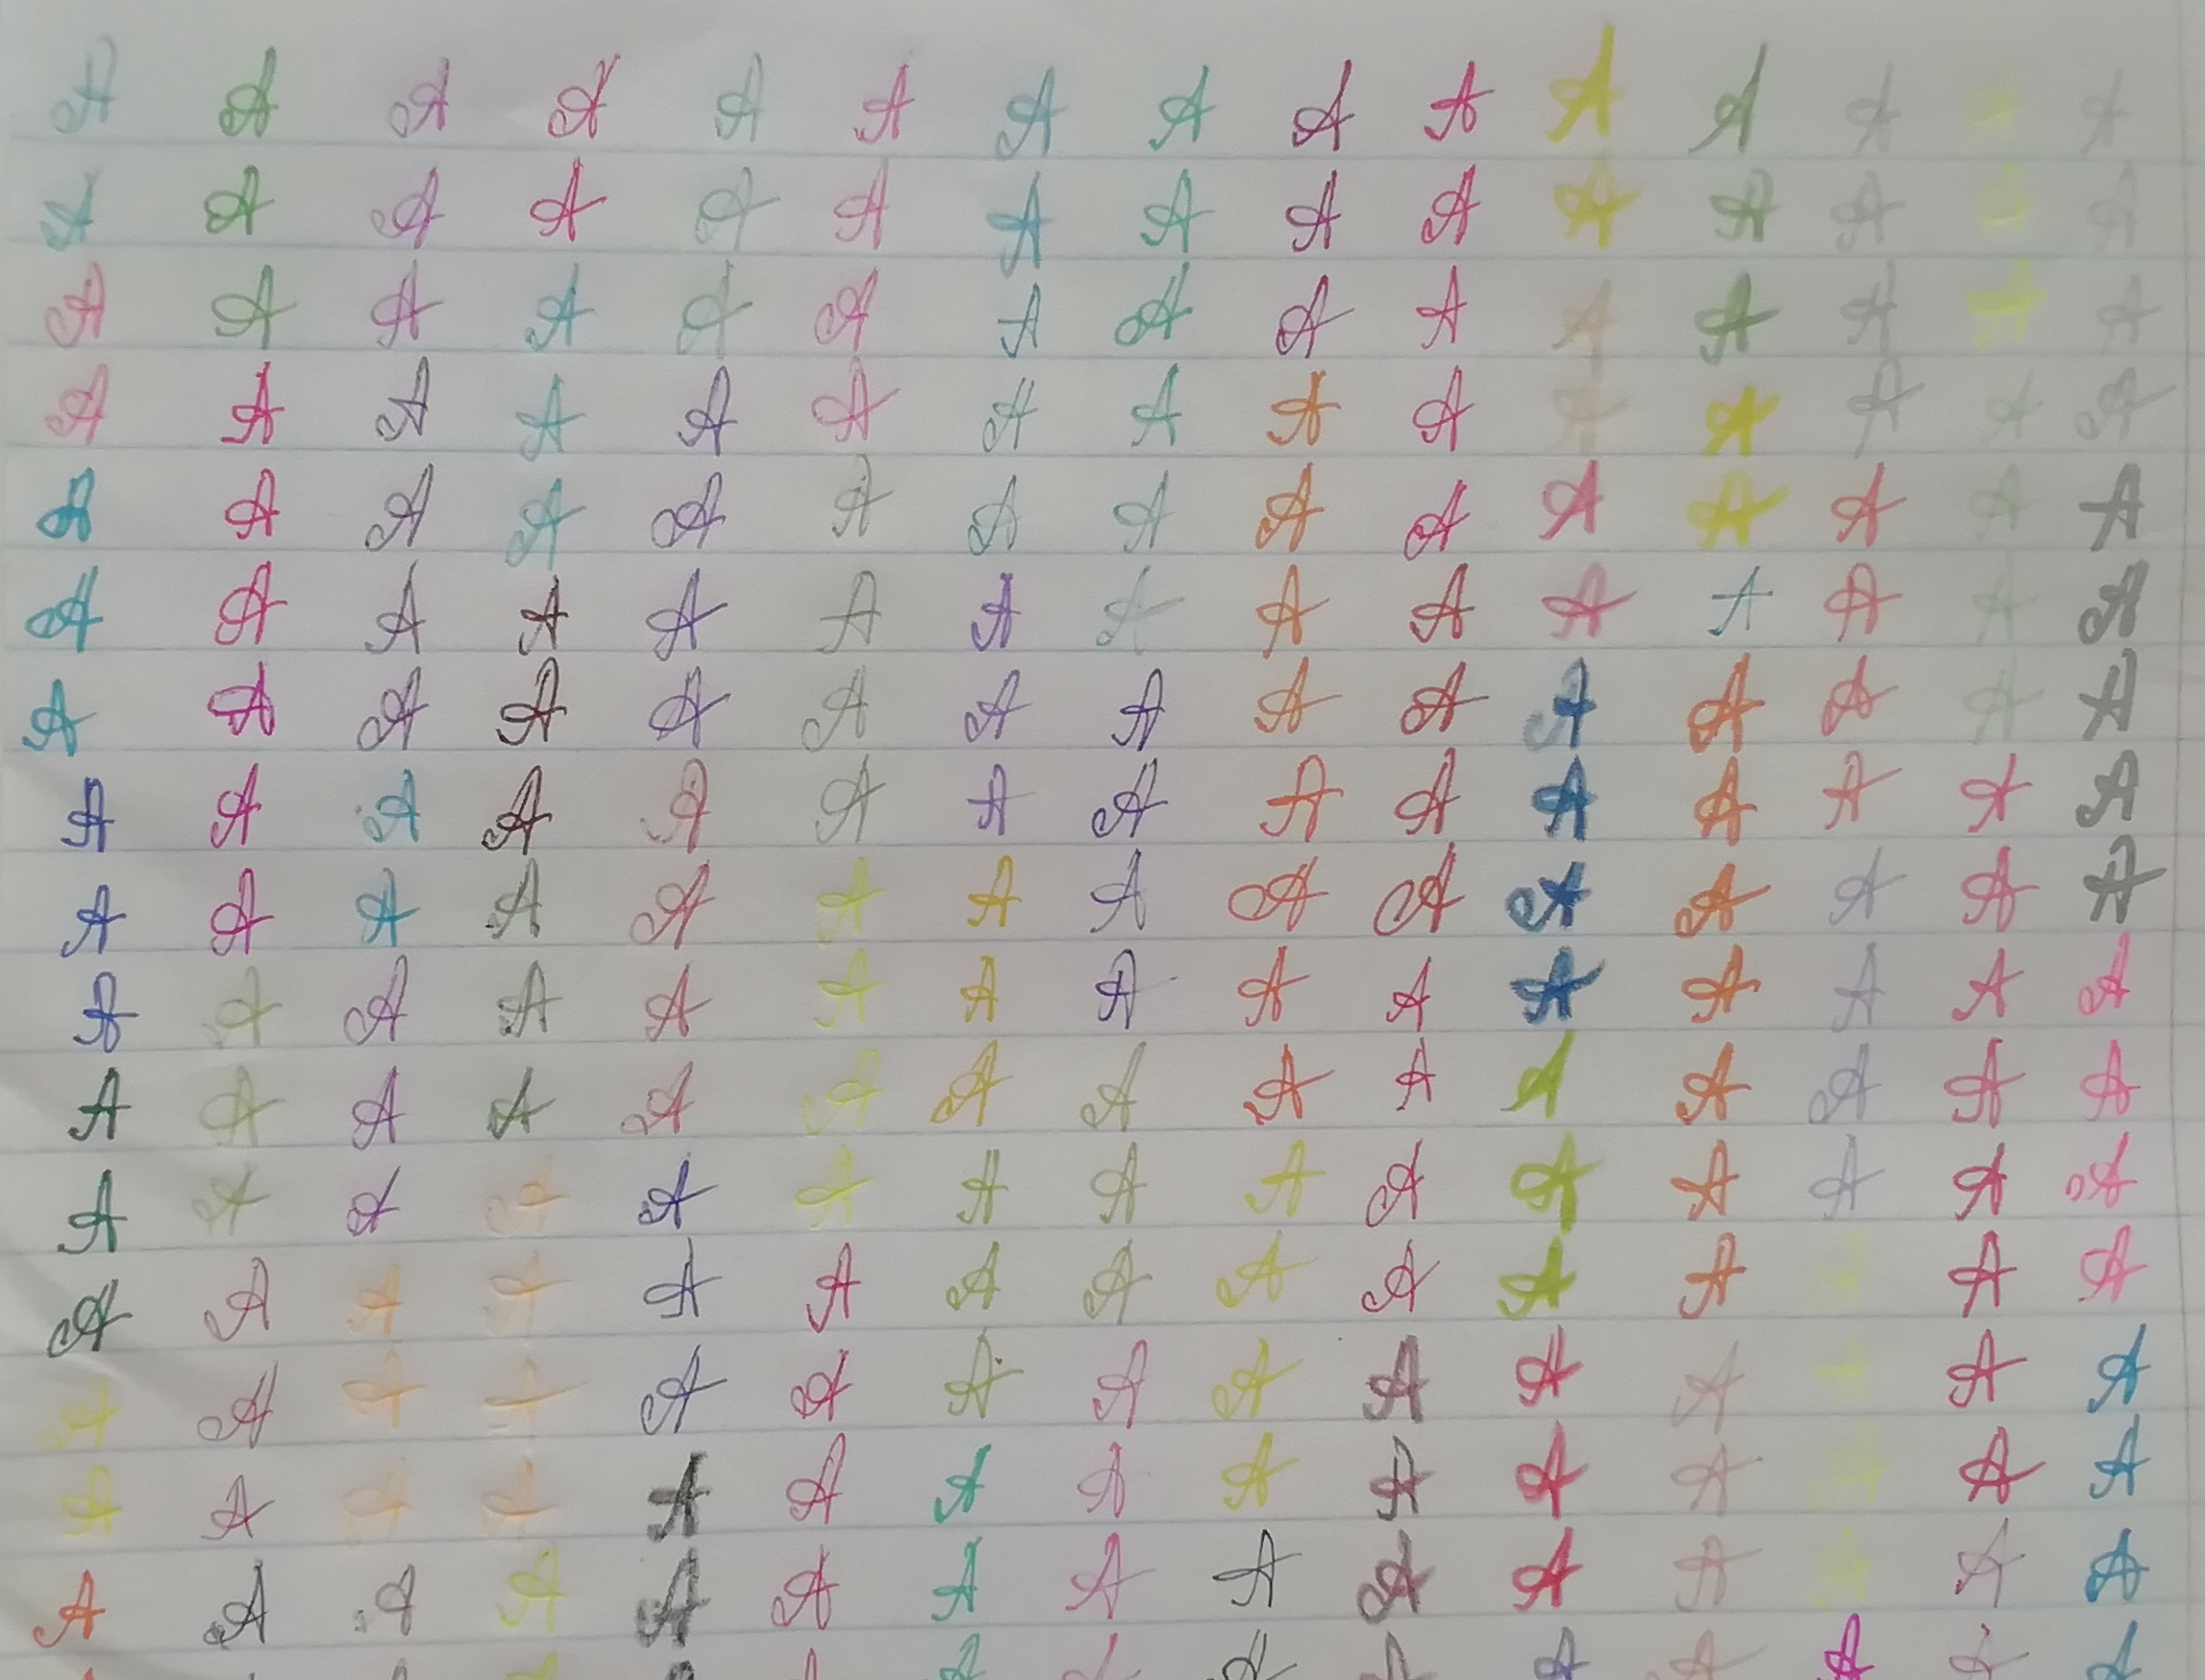 A A A A A A A A A A A A A A A
A A A A A A A A A A A A A A A
A A A A A A A A A A A A A A A
A A A A A A A A A A A A A A A
A A A A A A A A A A A A A A A
A A A A A A A A A A A A A A A
A A A A A A A A A A A A A A A
A A A A A A A A A A A A A A A
A A A A A A A A A A A A A A A
A A A A A A A A A A A A A A A
A A A A A A A A A A A A A A A
A A A A A A A A A A A A A A A
A A A A A A A A A A A A A A A
A A A A A A A A A A A A A A A
A A A A A A A A A A A A A A A
A A A A A A A A A A A A A A A